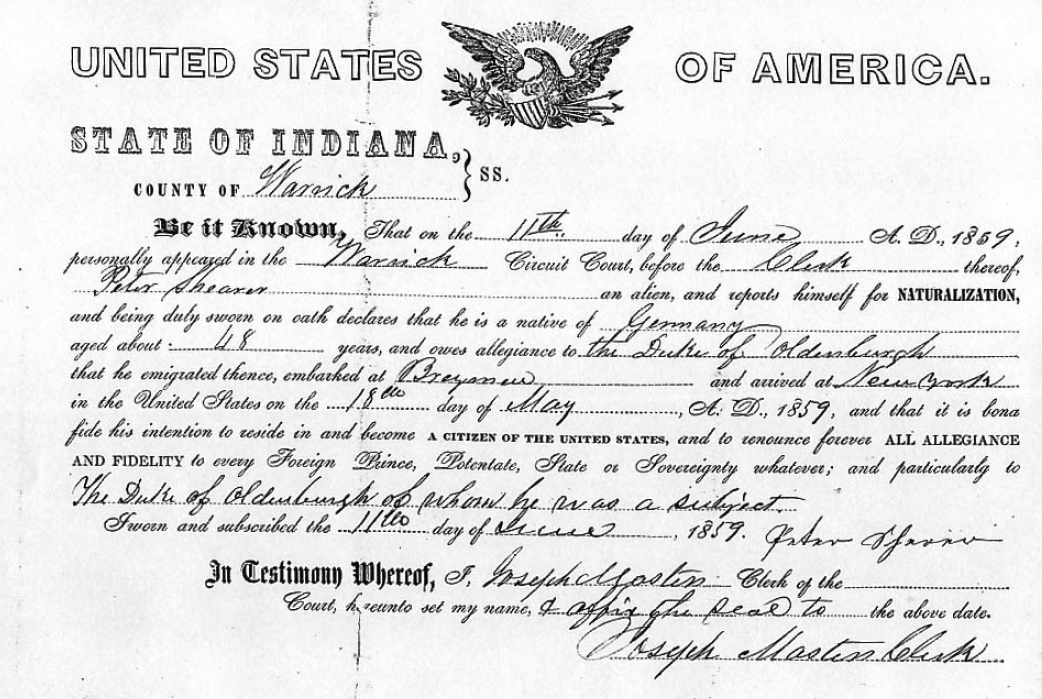 UNITED STATES OF AMERICA.
STATE OF INDIANA,
COUNTY OF Warrick } SS.
Be it Known, That on the 11th. day of June A. D., 1859,
personally appeared in the Warrick Circuit Court, before the Clerk thereof,
Peter Shearer an alien, and reports himself for NATURALIZATION,
and being duly sworn on oath declares that he is a native of Germany
aged about 48 years, and owes allegiance to the Duke of Oldenburgh
that he emigrated thence, embarked at Breymen and arrived at New York
in the United States on the 18th day of May, A. D., 1859, and that it is bona
fide his intention to reside in and become A CITIZEN OF THE UNITED STATES, and to renounce forever ALL ALLEGIANCE
AND FIDELITY to every Foreign Prince, Potentate, State or Sovereignty whatever; and particularly to
The Duke of Oldenburgh of whom he was a subject.
Sworn and subscribed the 11th day of June, 1859. Peter
In Testimony Whereof, I, Joseph Masten Clerk of the
Court, hereunto set my name, & affix the seal to the above date.
Joseph Masten Clerk